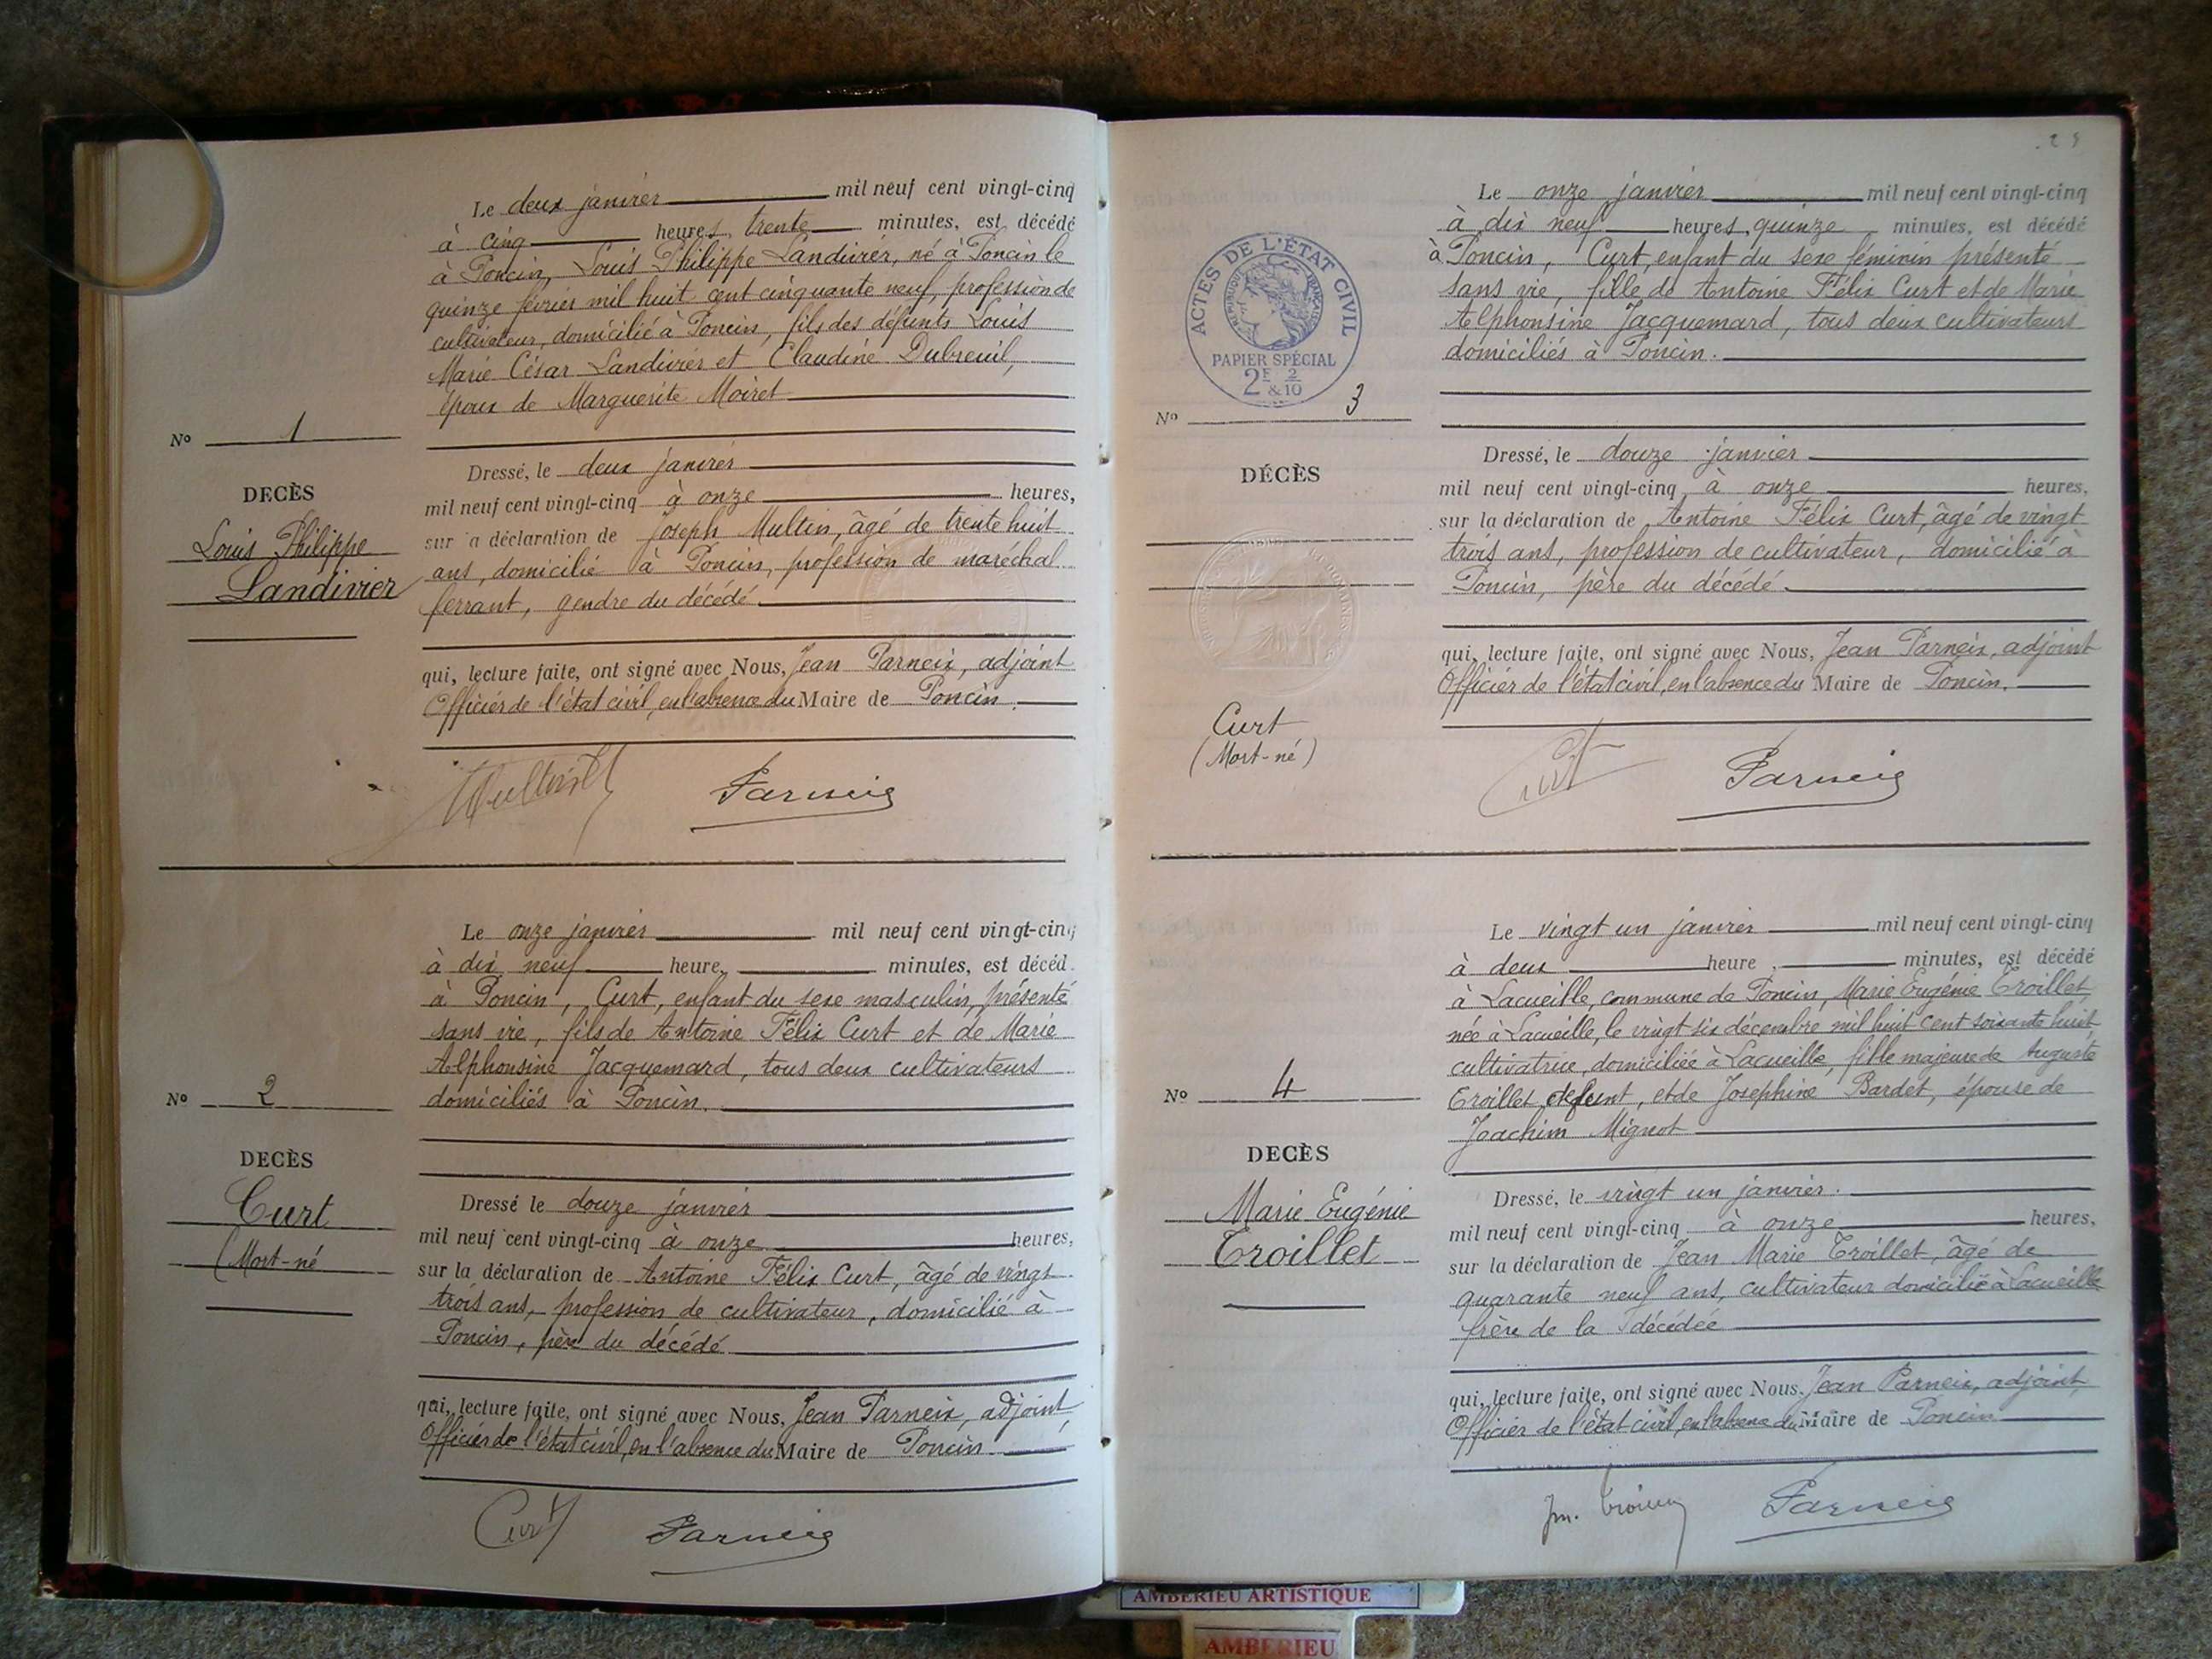 Le deux janvier mil neuf cent vingt-cinq
à cinq heures, trente minutes, est décédé
à Poncin, Louis Philippe Landivier, né à Poncin le
quinze février mil huit cent cinquante neuf, profession de
cultivateur, domicilié à Poncin, fils des défunts Louis
Marie César Landivier et Claudine Dubreuil,
époux de Marguerite Moiret
No 1
DECÈS
Louis Philippe
Landivier
Dressé, le deux janvier
mil neuf cent vingt-cinq à onze heures,
sur a déclaration de Joseph Multin, âgé de trente huit
ans, domicilié à Poncin, profession de maréchal
ferrant, gendre du décédé
qui, lecture faite, ont signé avec Nous, Jean Parneix, adjoint
Officier de l'état civil, en l'absence du Maire de Poncin.
Parneix
Le onze janvier mil neuf cent vingt-cinq
à dix neuf heure, minutes, est décéd
à Poncin, Curt, enfant du sexe masculin, présenté
sans vie, fils de Antoine Félix Curt et de Marie
Alphonsine Jacquemard, tous deux cultivateurs
domiciliés à Poncin.
No 2
DECÈS
Curt
(Mort-né
Dressé le douze janvier
mil neuf cent vingt-cinq à onze heures,
sur la déclaration de Antoine Félix Curt, âgé de vingt
trois ans, profession de cultivateur, domicilié à
Poncin, père du décédé
qui, lecture faite, ont signé avec Nous, Jean Parneix, adjoint,
Officier de l'état civil, en l'absence du Maire de Poncin.
Curt Parneix
ACTES DE L'ÉTAT CIVIL
RÉPUBLIQUE FRANÇAISE
PAPIER SPÉCIAL
2F 2
& 10
Le onze janvier mil neuf cent vingt-cinq
à dix neuf heures, quinze minutes, est décédé
à Poncin, Curt, enfant du sexe féminin présenté
sans vie, fille de Antoine Félix Curt et de Marie
Alphonsine Jacquemard, tous deux cultivateurs
domiciliés à Poncin.
No 3
DÉCÈS
Curt
(Mort-né)
Dressé, le douze janvier
mil neuf cent vingt-cinq, à onze heures,
sur la déclaration de Antoine Félix Curt, âgé de vingt
trois ans, profession de cultivateur, domicilié à
Poncin, père du décédé.
qui, lecture faite, ont signé avec Nous, Jean Parneix, adjoint
Officier de l'état civil, en l'absence du Maire de Poncin.
Curt Parneix
Le vingt un janvier mil neuf cent vingt-cinq
à deux heure, minutes, est décédé
à Lacueille, commune de Poncin, Marie Eugénie Troillet,
née à Lacueille, le vingt six décembre mil huit cent soixante huit,
cultivatrice, domiciliée à Lacueille, fille majeure de Auguste
Troillet, défunt, et de Josephine Bardet, épouse de
Joachim Mignot
No 4
DECÈS
Marie Eugénie
Troillet
Dressé, le vingt un janvier.
mil neuf cent vingt-cinq à onze heures,
sur la déclaration de Jean Marie Troillet, âgé de
quarante neuf ans, cultivateur domicilié à Lacueille
frère de la décédée
qui, lecture faite, ont signé avec Nous, Jean Parneix, adjoint,
Officier de l'état civil, en l'absence du Maire de Poncin
Parneix
AMBERIEU ARTISTIQUE
AMBERIEU